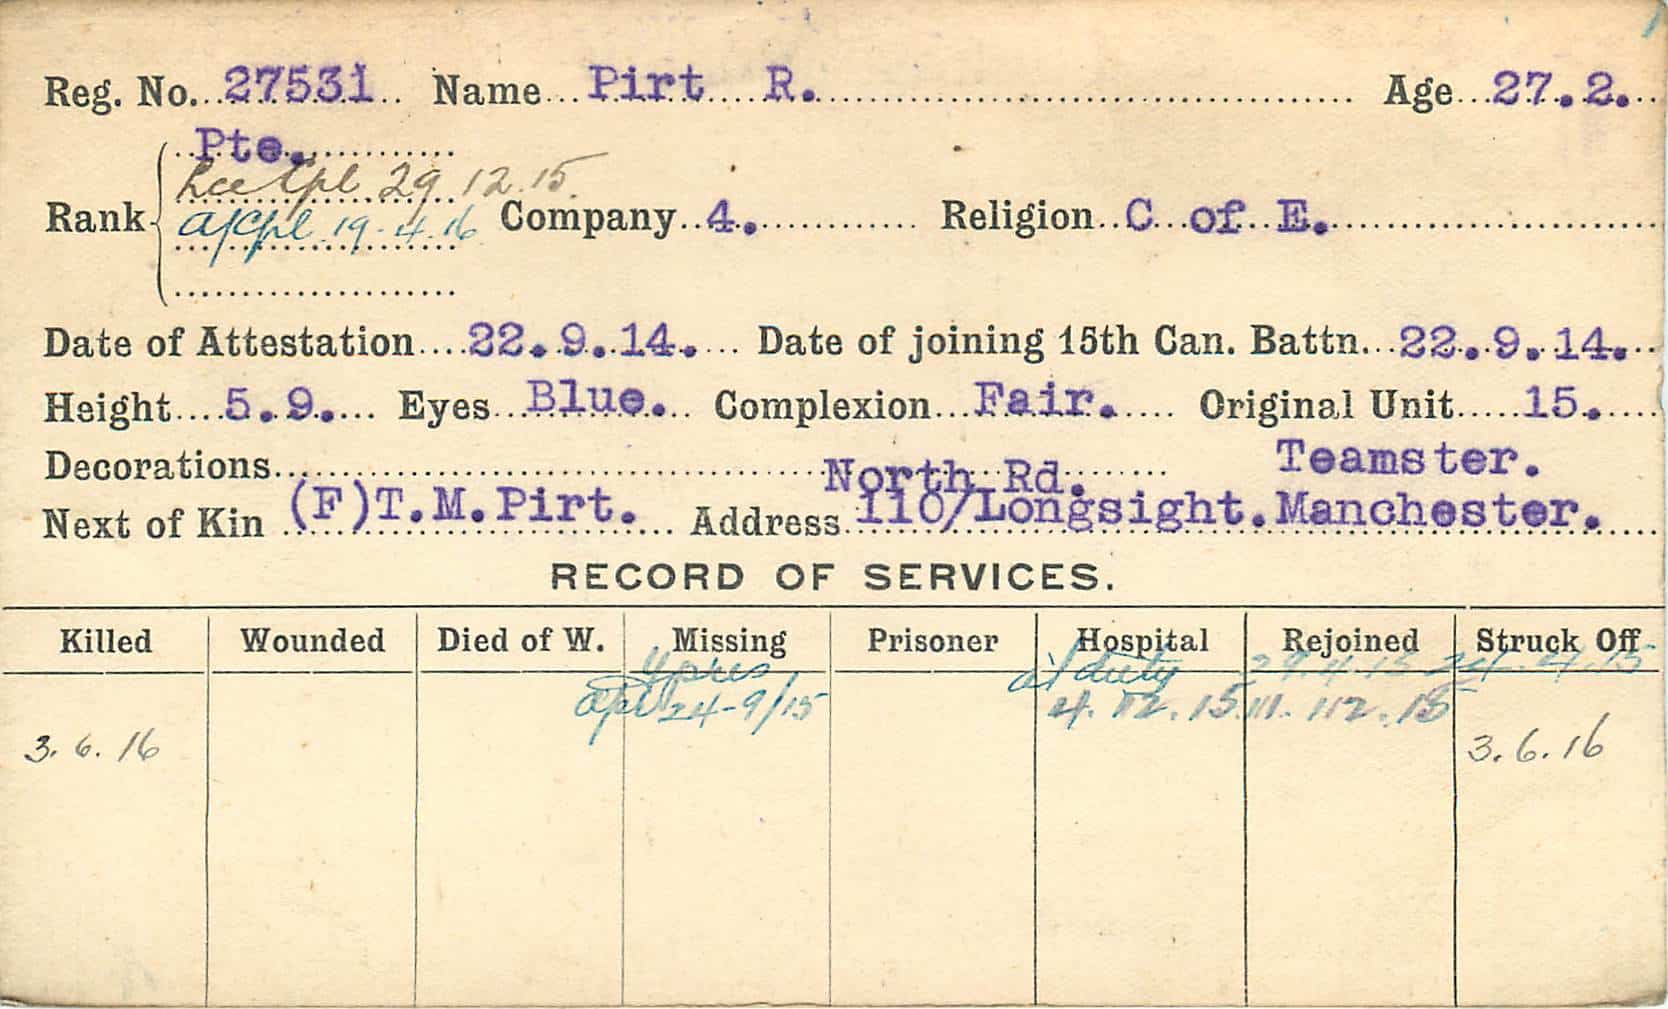 Reg. No. 27531 Name Pirt R. Age 27.2.
Pte.
Lce Cpl 29.12.15.
Rank a/Cpl 19-4-16 Company 4. Religion C of E.
Date of Attestation 22.9.14. Date of joining 15th Can. Battn. 22.9.14.
Height 5.9. Eyes Blue. Complexion Fair. Original Unit 15.
Decorations Teamster.
North Rd.
Next of Kin (F)T.M.Pirt. Address 110/Longsight.Manchester.
RECORD OF SERVICES.
Killed Wounded Died of W. Missing Prisoner Hospital Rejoined Struck Off
Ypres at duty 29.4.15 24-4-15
Apl 24-9/15 4. 12. 15 11. 12. 15
3.6.16 3.6.16